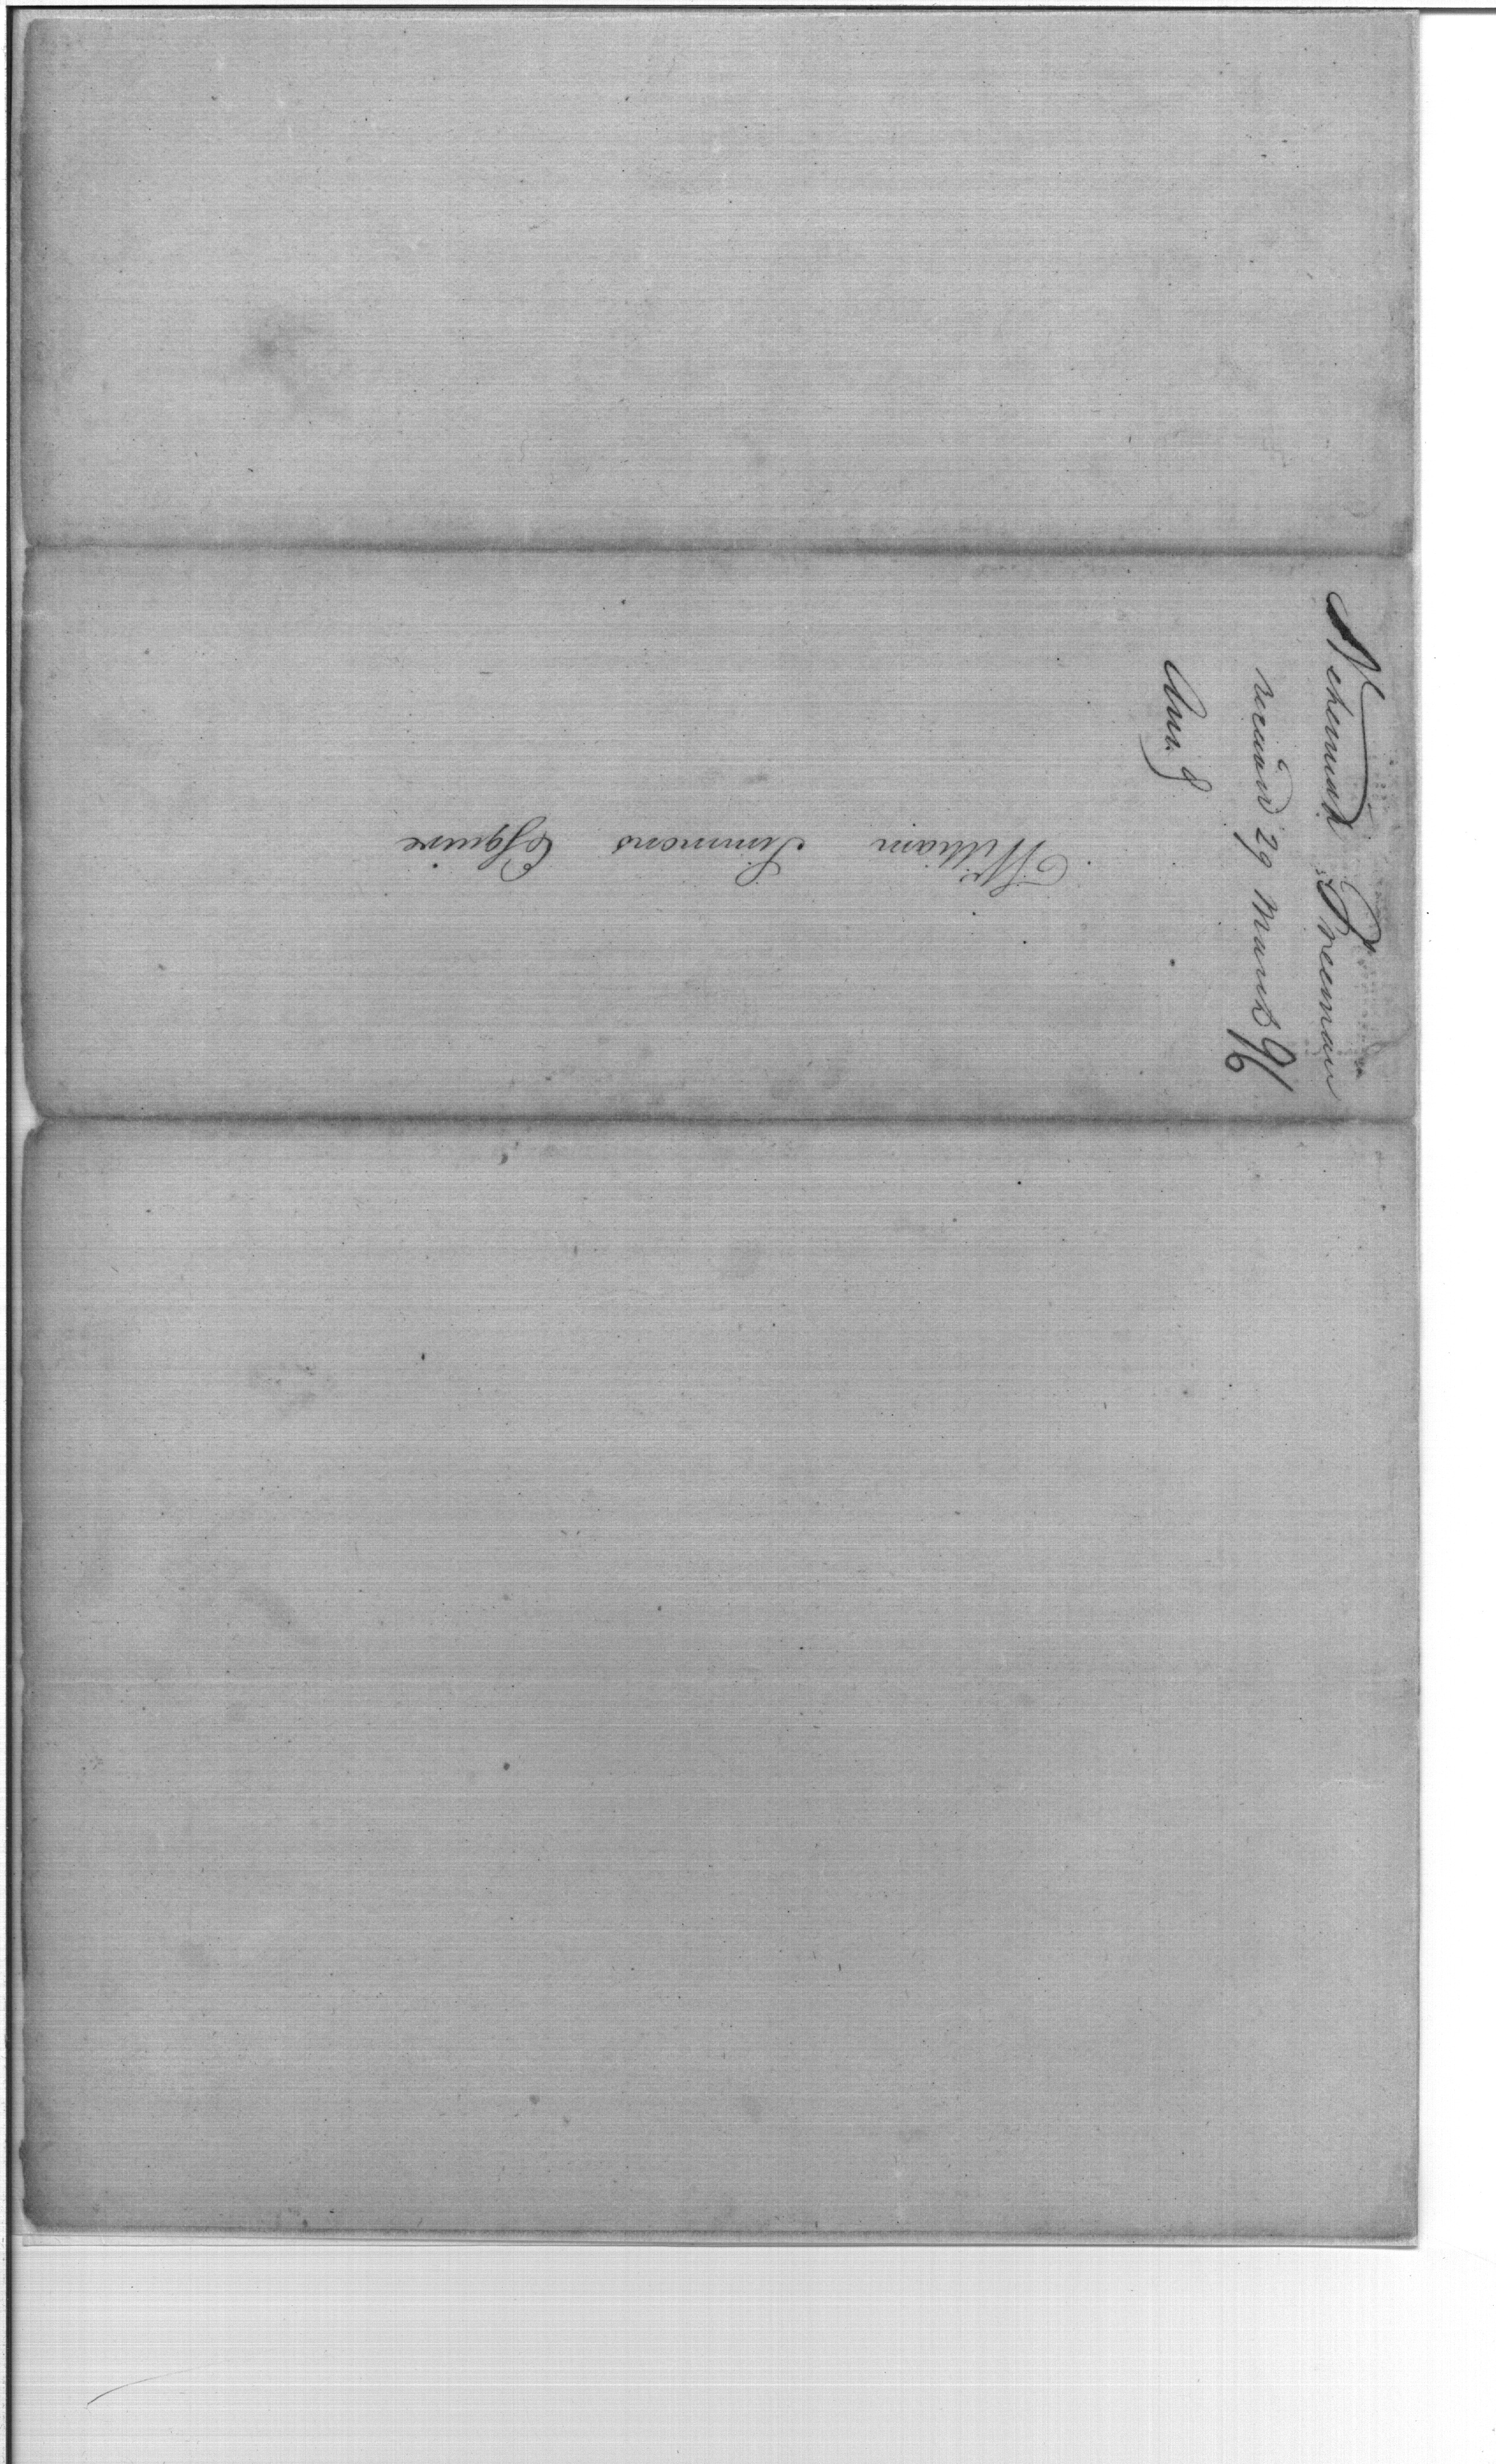 Nehemiah Freeman
recēivd 29 March 96
William Simmons Esquire